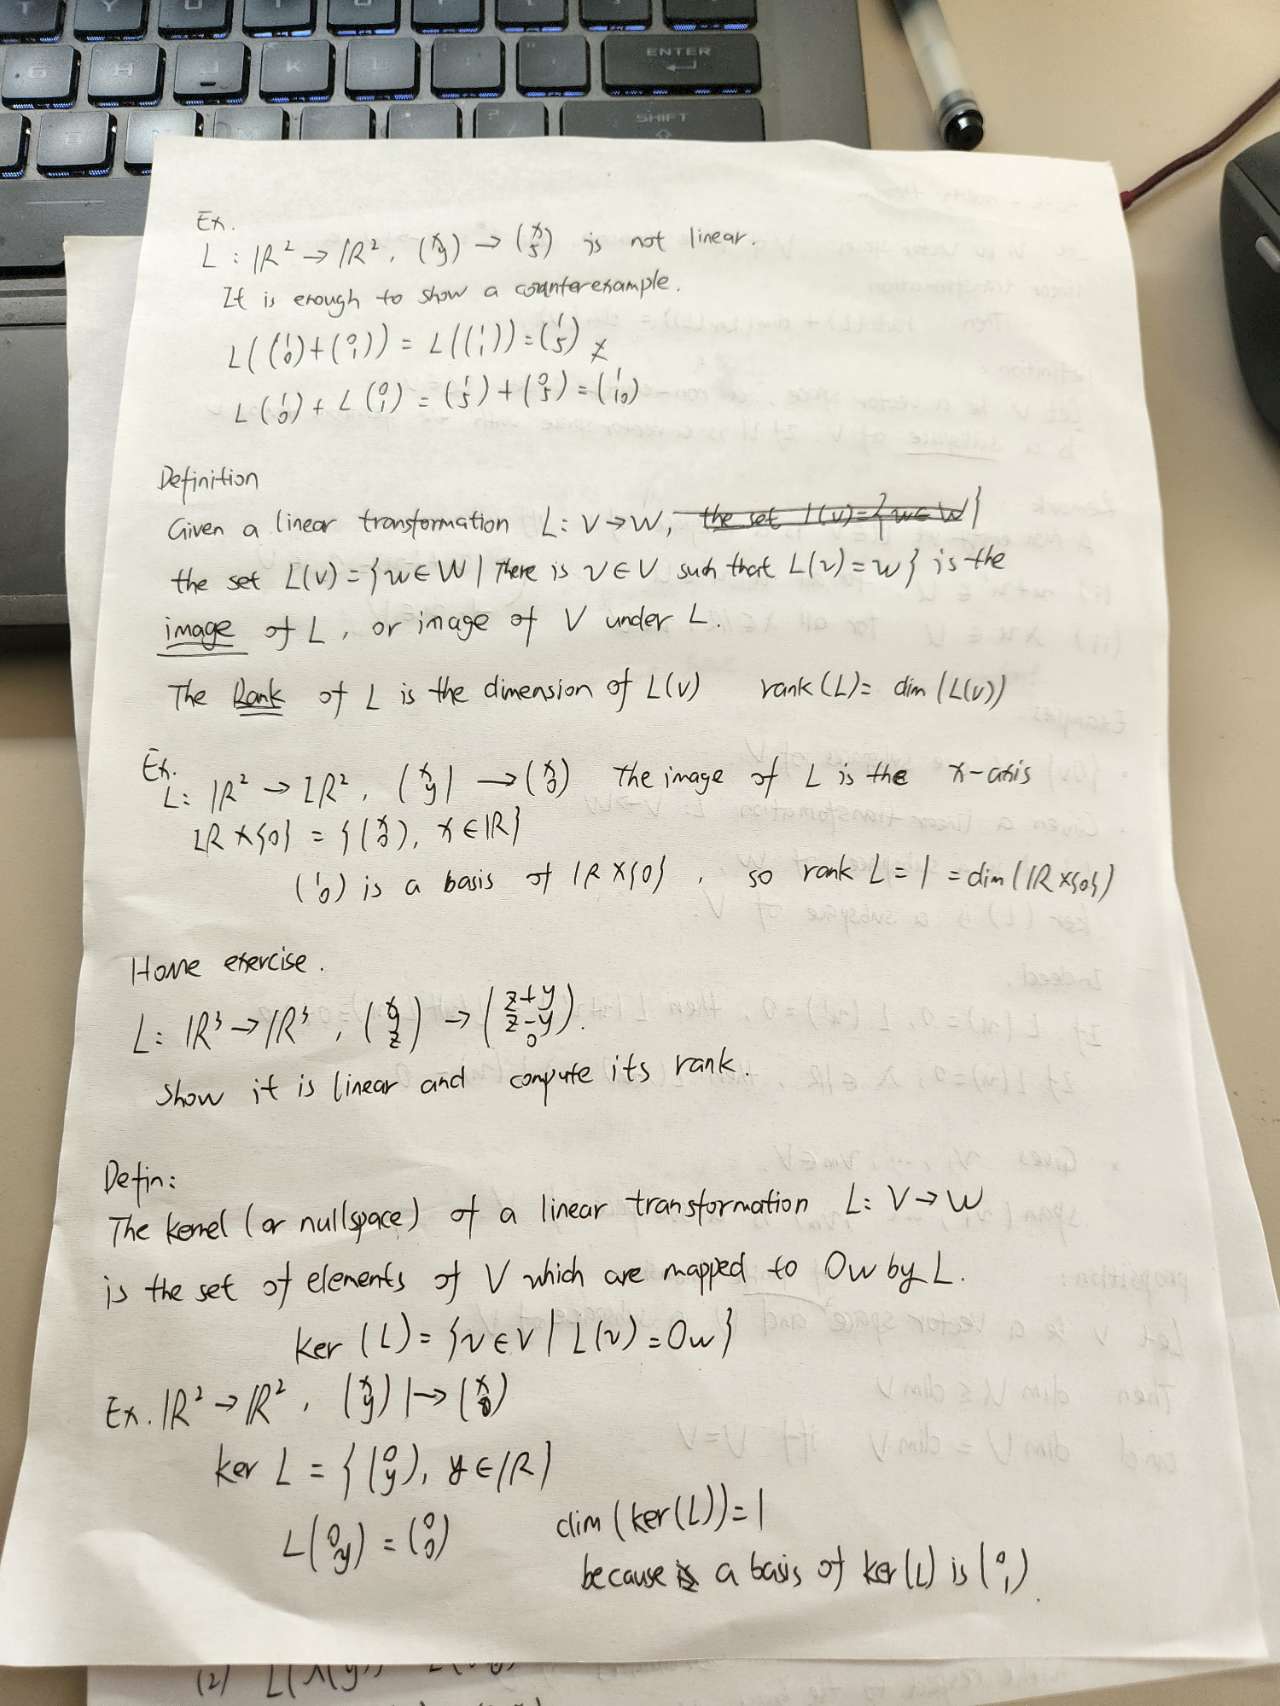 ENTER
SHIFT
Ex.
L : ℝ² → ℝ², (x y) → (x 5) is not linear.
It is enough to show a counterexample.
L((1 0)+(0 1)) = L((1 1)) = (1 5) ≠
L(1 0) + L(0 1) = (1 5) + (0 5) = (1 10)
Definition
Given a linear transformation L: V → W, the set L(v) = {w ∈ W}
the set L(v) = {w ∈ W | There is v ∈ V such that L(v) = w} is the
image of L, or image of V under L.
The Rank of L is the dimension of L(v) rank(L) = dim(L(v))
Ex.
L: ℝ² → ℝ², (x y) → (x 0) The image of L is the x-axis
ℝ×{0} = {(x 0), x ∈ ℝ}
(1 0) is a basis of ℝ×{0}, so rank L = 1 = dim(ℝ×{0})
Home exercise.
L: ℝ³ → ℝ³, (x y z) → (z+y z-y 0).
Show it is linear and compute its rank.
Defin:
The kernel (or nullspace) of a linear transformation L: V → W
is the set of elements of V which are mapped to 0w by L.
ker (L) = {v ∈ V | L(v) = 0w}
Ex. ℝ² → ℝ², (x y) ↦ (x 0)
ker L = {(0 y), y ∈ ℝ}
L(0 y) = (0 0) dim(ker(L)) = 1
because a basis of ker(L) is (0 1).